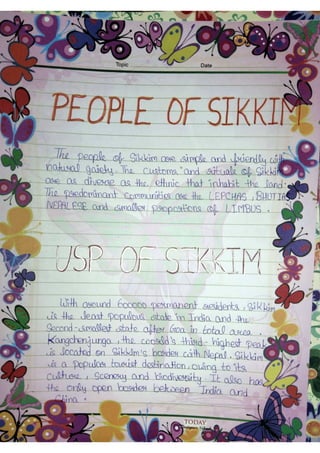 Topic Date
PEOPLE OF SIKKIM
The people of Sikkim are simple and friendly with
natural gaiety. The customs and rituals of Sikkim
are as diverse as the ethnic that inhabit the land.
The predominant communities are the LEPCHAS, BHUTIA
NEPALESE and smaller propostions of LIMBUS.
USP OF SIKKIM
With around 600000 permanent residents, Sikkim
is the least populous state in India and the
Second-smallest state after Goa in total area.
Kangchenjunga, the world's third-highest peak
is located on Sikkim's border with Nepal. Sikkim
is a popular tourist destination, owing to its
culture, scenery and biodiversity. It also has
the only open border between India and
China.
TODAY